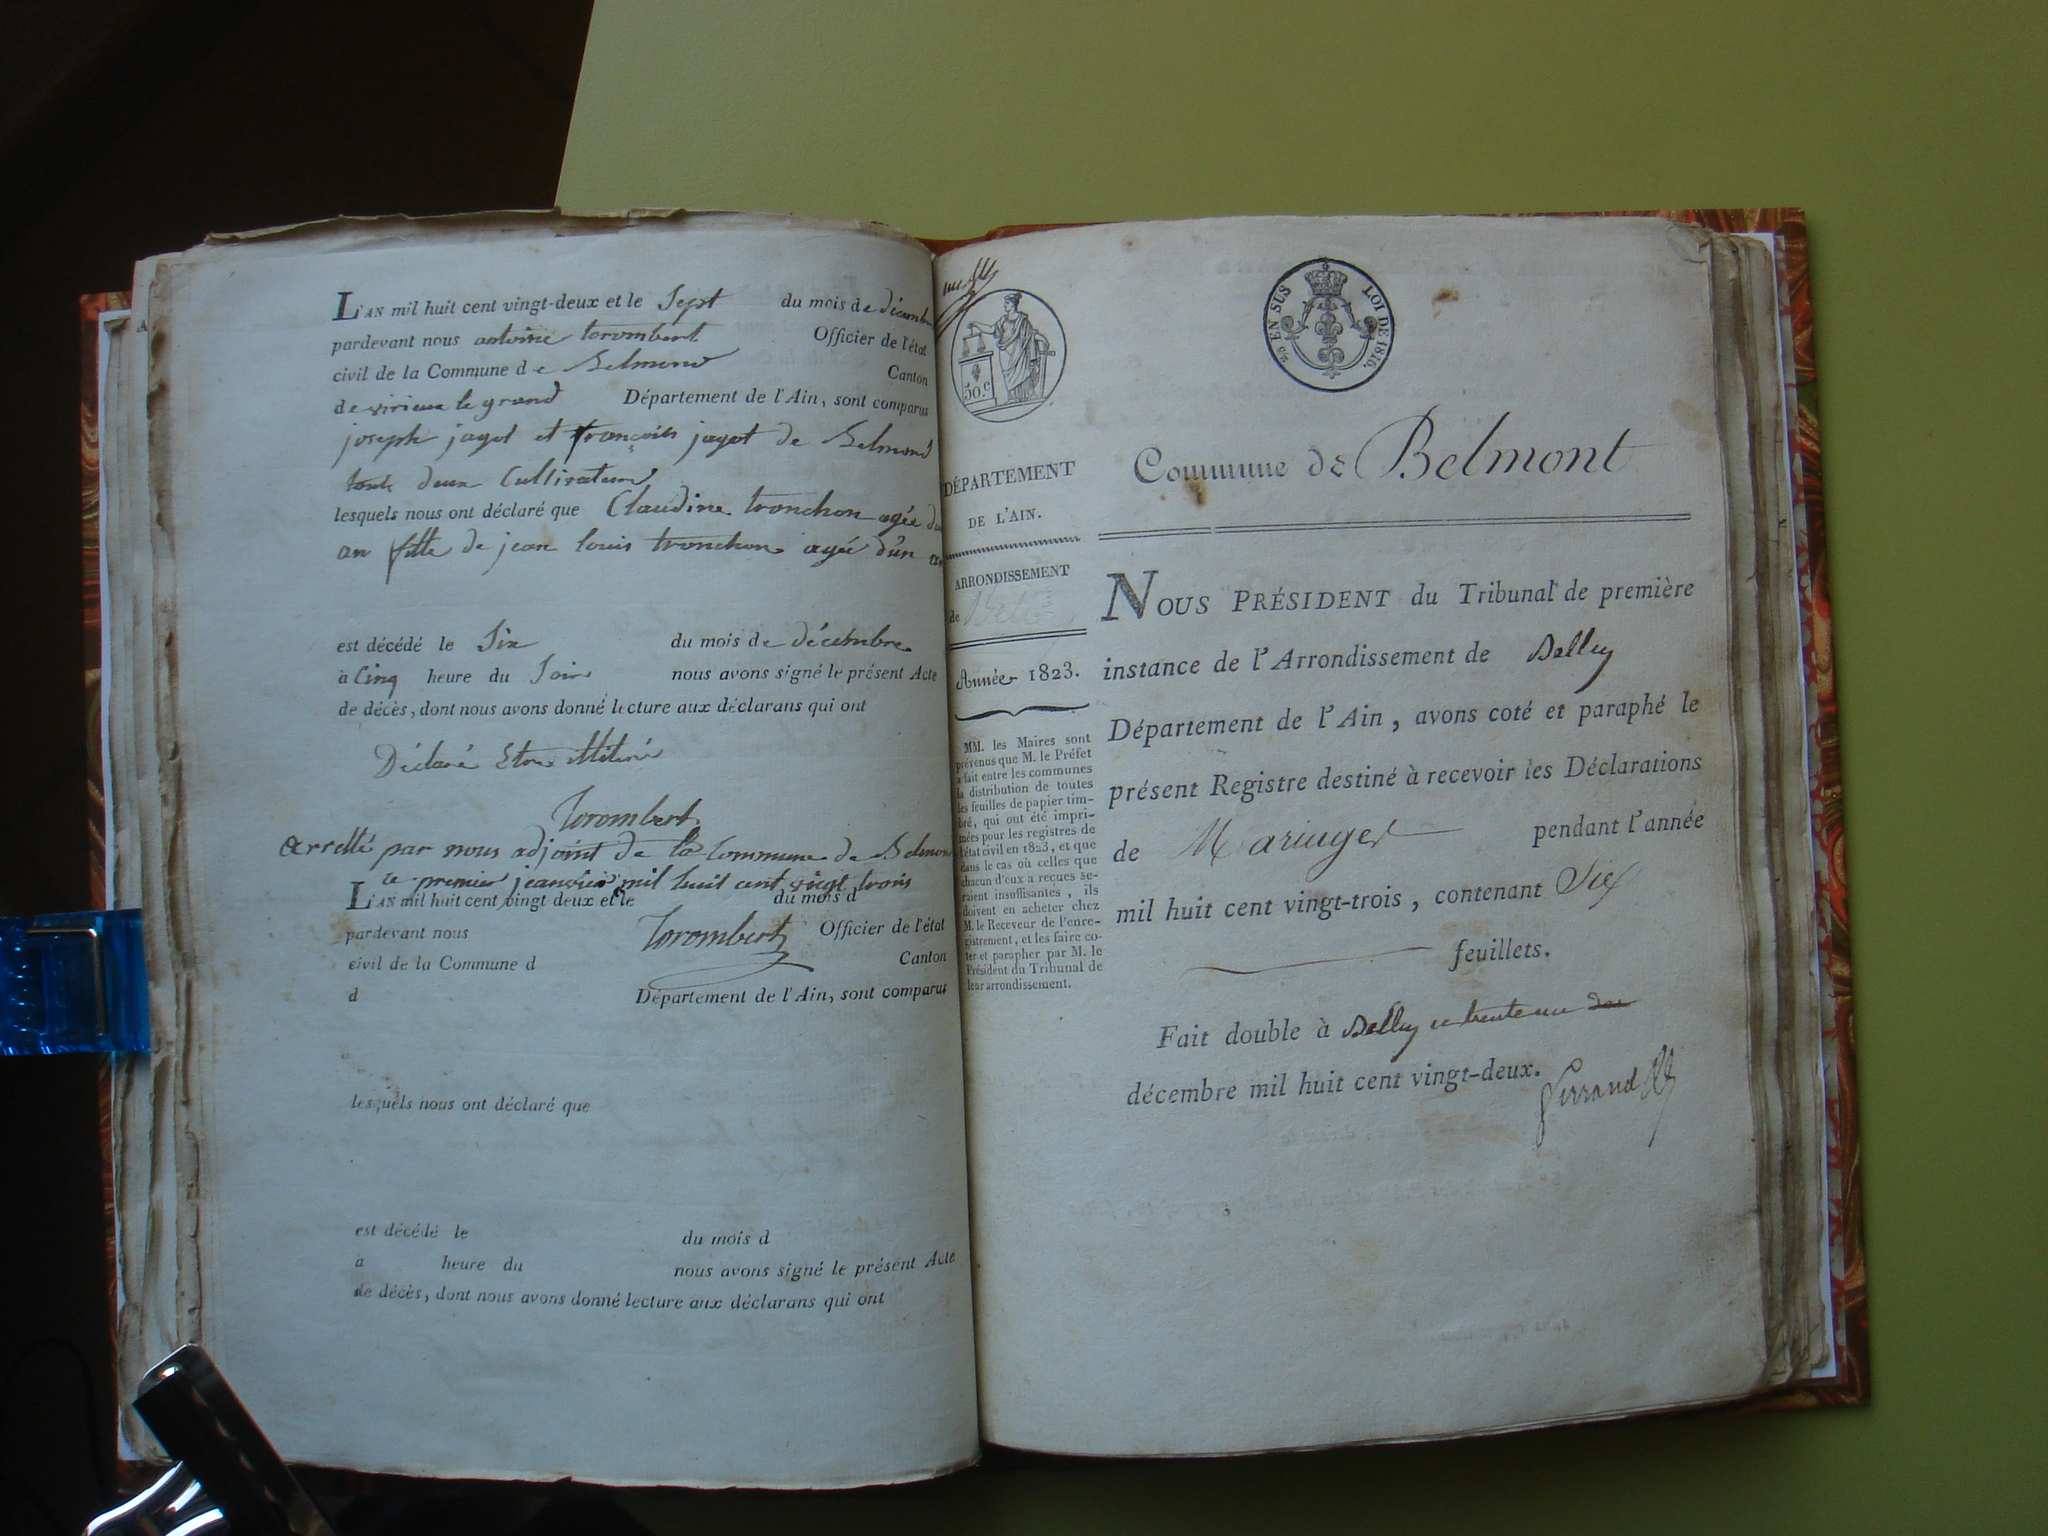 L'AN mil huit cent vingt-deux et le Sept du mois de décembre
pardevant nous antoine torombert Officier de l'état
civil de la Commune de Belmond Canton
de virieux le grand Département de l'Ain, sont comparus
joseph jagot et françois jagot de Belmond
tout deux Cultivateur
lesquels nous ont déclaré que Claudine tronchon agée d'un
an fille de jean louis tronchon agée d'un an
est décédé le Six du mois de décembre
à Cinq heure du Soir nous avons signé le présent Acte
de décès, dont nous avons donné lecture aux déclarans qui ont
Déclaré Etre illitéré
Torombert
arretté par nous adjoint de la Commune de Belmond
le premier jeanvier mil huit cent vingt trois
L'AN mil huit cent vingt deux et le du mois d
pardevant nous Torombert Officier de l'état
civil de la Commune d Canton
d Département de l'Ain, sont comparus
lesquels nous ont déclaré que
est décédé le du mois d
à heure du nous avons signé le présent Acte
de décès, dont nous avons donné lecture aux déclarans qui ont
50.c
EN SUS LOI DE 1816.
DÉPARTEMENT
DE L'AIN.
ARRONDISSEMENT
de
Année 1823.
MM. les Maires sont
prévenus que M. le Préfet
a fait entre les communes
la distribution de toutes
les feuilles de papier tim-
bré, qui ont été impri-
mées pour les registres de
l'état civil en 1823, et que
dans le cas où celles que
chacun d'eux a recues se-
raient insuffisantes, ils
doivent en acheter chez
M. le Receveur de l'enre-
gistrement, et les faire co-
ter et parapher par M. le
Président du Tribunal de
leur arrondissement.
Commune de Belmont
NOUS PRÉSIDENT du Tribunal de première
instance de l'Arrondissement de Belley
Département de l'Ain, avons coté et paraphé le
présent Registre destiné à recevoir les Déclarations
de Mariages pendant l'année
mil huit cent vingt-trois, contenant Six
feuillets.
Fait double à Belley ce trente un
décembre mil huit cent vingt-deux.